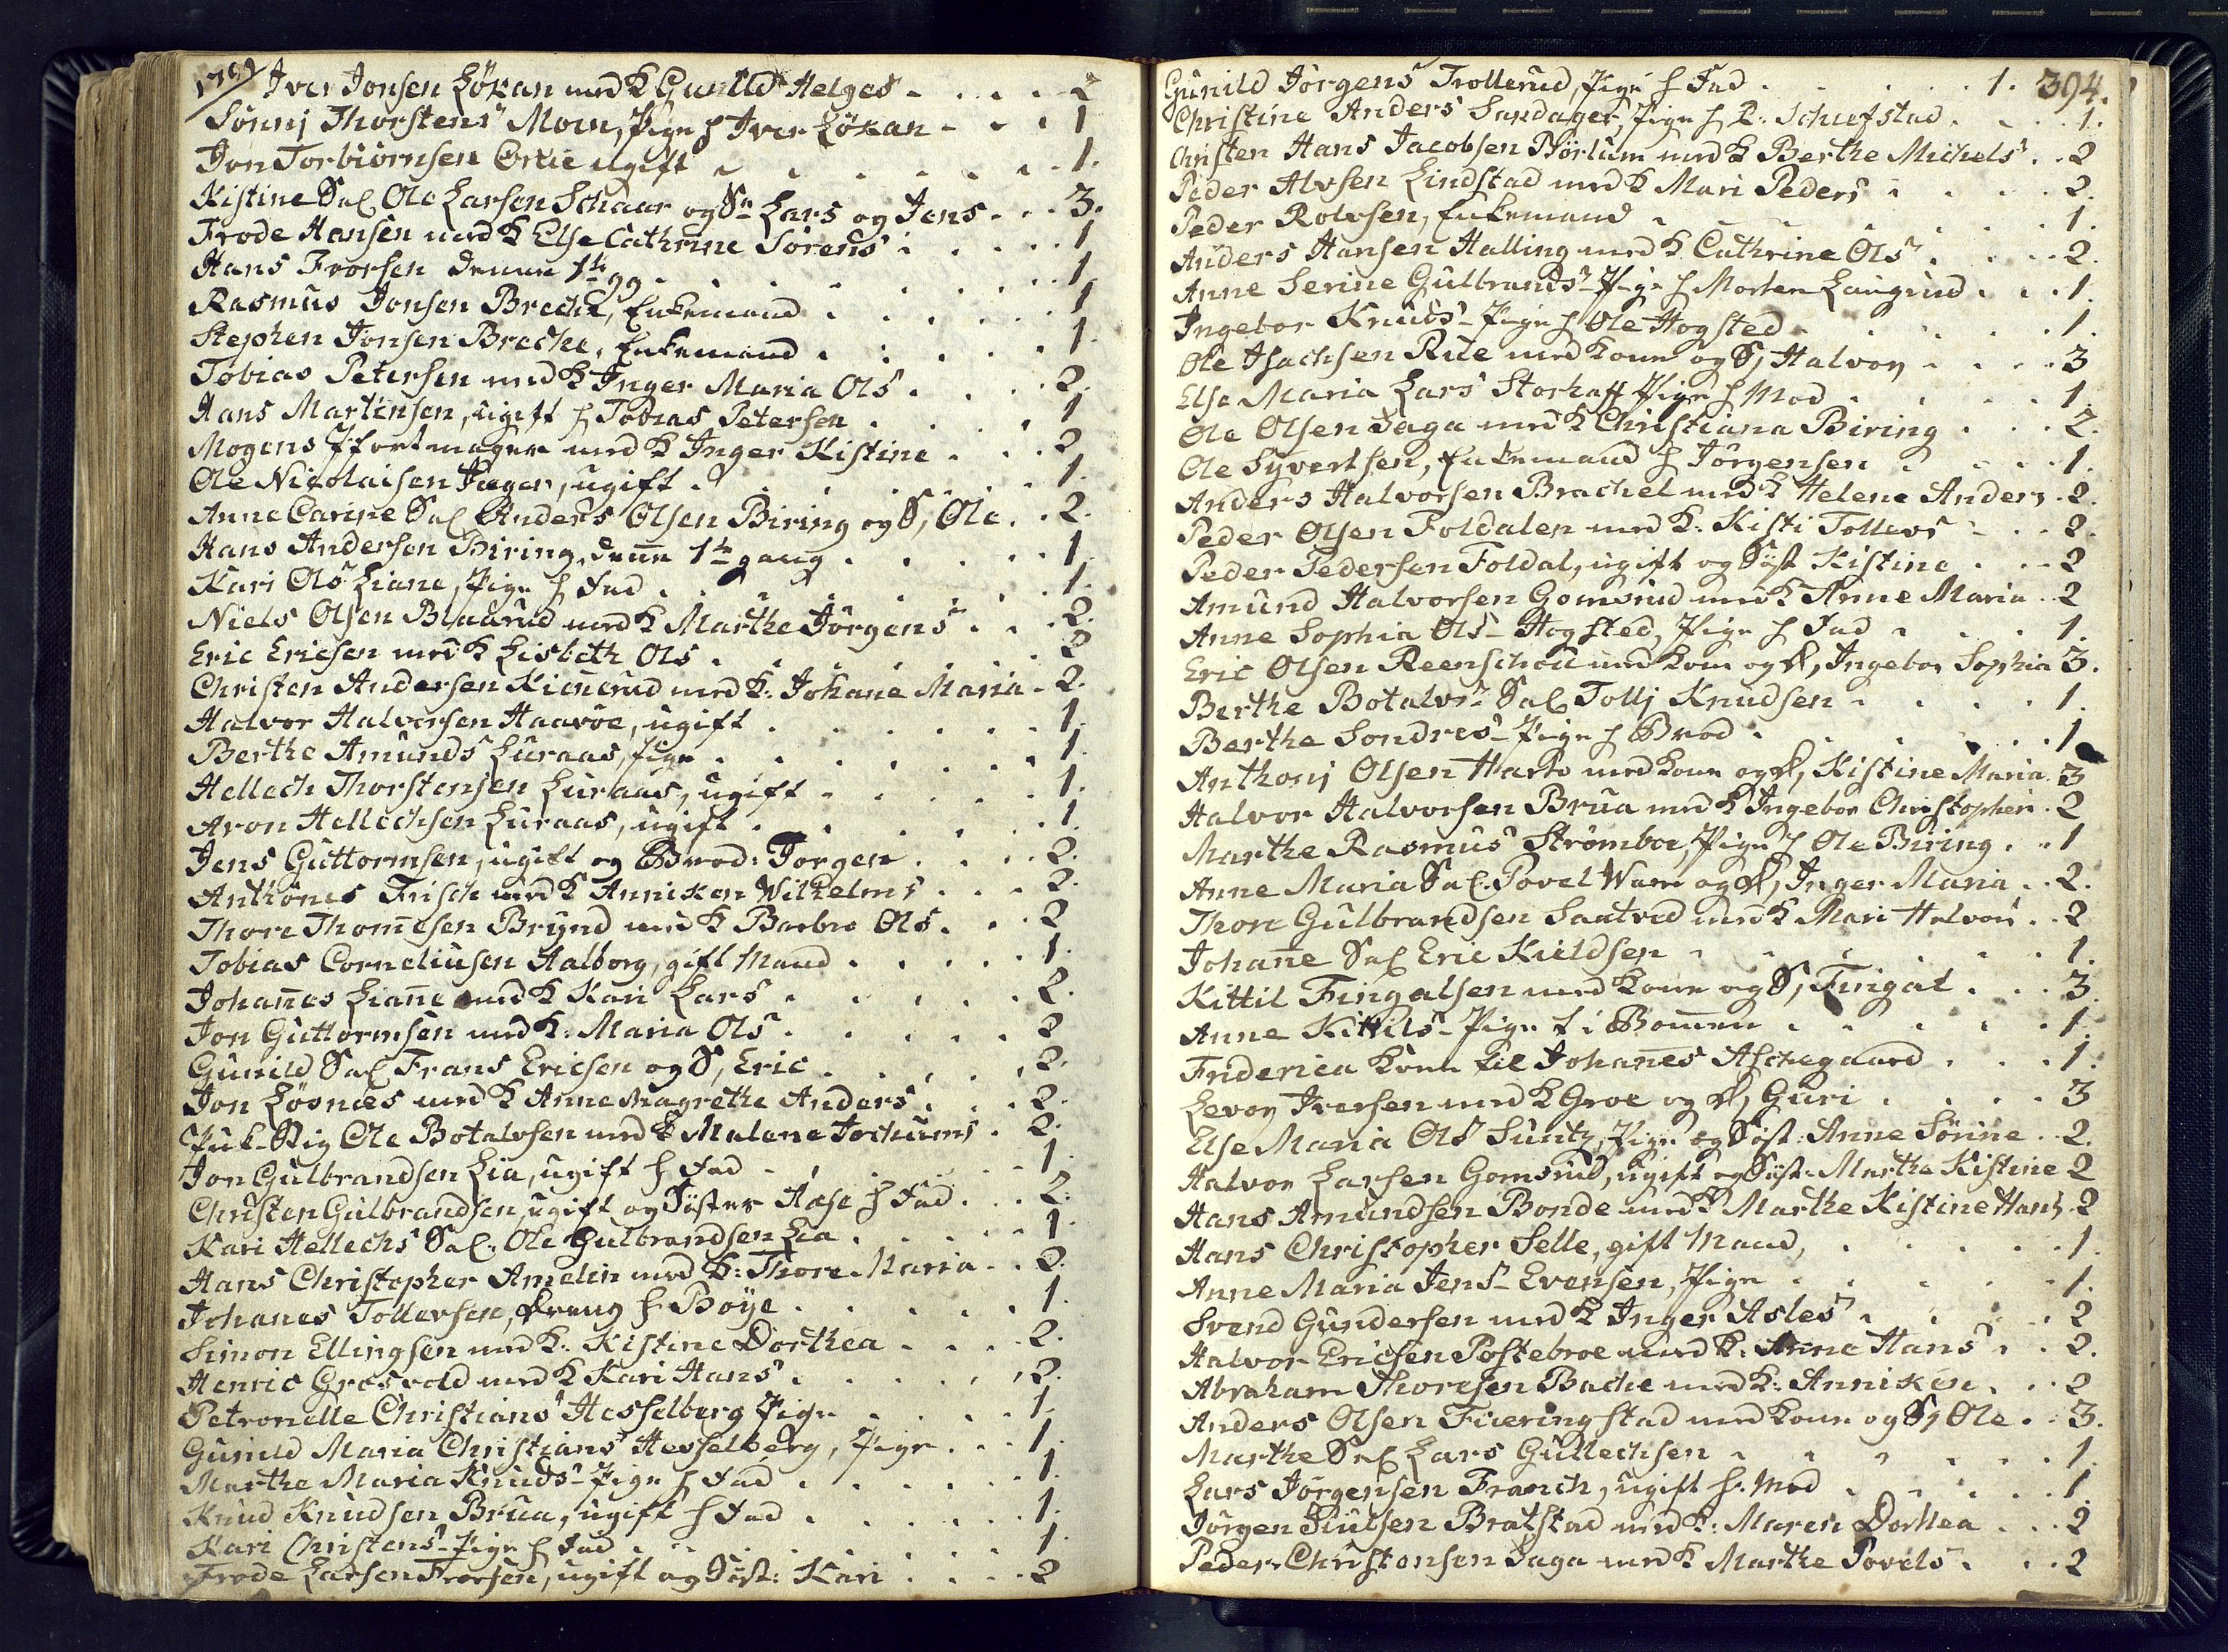 1799
Iver Jonsen Lökan med K Gunild Helges - 2
Sönnj Thorstens Moen, Pige h Iver Lökan - 1
Jon Torbiörnsen Cretie ugift 1.
Kistine Sal Ole Larsen Schaar og Sn Lars og Jens 3.
Frode Hansen med K Else Cathrine Sörens 1
Hans Frorsen denne 1te gg 1
Rasmus Jonsen Breche, Enkemand 1
Stephen Jonsen Breche, Enkemand 1.
Tobias Petersen med K Inger Maria Ols 2.
Hans Martinsen, ugift h Tobias Petersen 1
Mogens Pfortmager med K Inger Kistine 2
Ole Nicolaisen Jæger, ugift 1.
Anne Carine Sal Anders Olsen Biring og S, Ole 2.
Hans Andersen Biring, denne 1te gang 1.
Kari Ols Liane, Pige h Fad 1.
Niels Olsen Blaarud med K Marthe Jörgens 2.
Eric Ericsen med K Lisbeth Ols 2
Christen Andersen Kiennerud med K: Johane Maria 2.
Halvor Halvorsen Haavoe, ugift 1.
Berthe Amunds Luraas, Pige 1.
Hellech Thorstensen Luraas, ugift 1.
Aron Hellechsen Luraas, ugift 1.
Jens Guttormsen, ugift og Brod: Torgen 2.
Anthönes Frisch med K Anniken Wilhelms 2.
Thore Thomesen Brynd med K Barbro Ols 2
Tobias Corneliusen Aalborg, gift Mand 1.
Johanes Liane med K Kari Lars 2.
Jon Guttormsen med K: Maria Ols 2
Gunild Sal Frans Ericsen og S, Eric 2.
Jon Lösnæs med K Anne Magrethe Anders 2.
Puk-Stig Ole Botalvsen med K Malene Jochums 2.
Jon Gulbrandsen Lia, ugift h Fad 1.
Christen Gulbrandsen, ugift og Söster Aase h Fad 2.
Kari Hellechs Sal. Ole Gulbrandsen Lia 1
Hans Christopher Amelin med K: Thore Maria 2.
Johanes Tollevsen, Dreng h Böye 1.
Simon Ellingsen med K: Kistine Dorthea 2.
Henric Grosvold med K Kari Hans 2.
Petronelle Christians Hesselberg Pige 1.
Gunild Maria Christians Hesselberg, Pige 1.
Marthe Maria Knuds- Pige h Fad 1.
Knud Knudsen Brua, ugift h Fad 1.
Kari Christens- Pige h Fad 1
Frode Larsen Frorsen, ugift og Söst: Kari 2
394.
Gunild Jörgens Trollerud, Pige h Fad 1.
Christine Anders Sandager, Pige h P. Schiefstad 1.
Christen Hans Jacobsen Pörlum med K Berthe Michels 2
Peder Alvsen Lindstad med K Mari Peders 2.
Peder Rolvsen, Enkemand 1.
Anders Hansen Halling med K. Cathrine Ols 2.
Anne Serine Gulbrands- Pige h Morten Laugrud 1.
Ingebor Knuds- Pige h Ole Hogsted 1.
Ole Isachsen Rue med Kone og S, Halvor 3
Else Maria Lars Storhoff Pige h Mod 1.
Ole Olsen Saga med K Christiana Biring 2.
Ole Syvertsen, Enkemand h Jörgensen 1.
Anders Halvorsen Brachel med K Helene Anders 2.
Peder Olsen Foldalen med K: Kisti Tollevs 2.
Peder Pedersen Foldal, ugift og Söst Kistine 2
Amund Halvorsen Gomsrud med K Anne Maria 2
Anne Sophia Ols- Hogsted, Pige h Fad 1.
Eric Olsen Reenschou med Kone og D, Ingebor Sophia 3.
Berthe Botalvs- Sal Tollj Knudsen 1.
Berthe Sondres- Pige h Brod 1
Anthonj Olsen Harbo med Kone og D, Kistine Maria 3
Halvor Halvorsen Brua med K Ingebor Christophers 2
Marthe Rasmus Strömboe, Pige h Ole Biring 1
Anne Maria Sal. Povel Warn og D, Inger Maria 2.
Thore Gulbrandsen Saatved med K Mari Halvors 2
Johane Sal Eric Kieldsen 1.
Kittil Fingalsen med Kone og S, Fingal 3.
Anne Kittils- Pige t i Bommen 1.
Friderica Kone til Johanes Aschegaard 1.
Levor Iversen med K Groe og D, Guri 3
Else Maria Ols Suntz, Pige og Söst: Anne Sönne 2.
Halvor Larsen Gomsrud, ugift og Söst: Marthe Kistine 2
Hans Amundsen Bonde med K Marthe Kistine Hans 2
Hans Christopher Selle, gift Mand, 1.
Anne Maria Jens- Evensen, Pige 1.
Svend Gundersen med K Inger Asles 2
Halvor Ericsen Postebroe med K: Anne Hans 2.
Abraham Thoresen Bache med K: Anniken 2
Anders Olsen Fiæringstad med Kone og S, Ole 3.
Marthe Sal Lars Gullechsen 1.
Lars Jörgensen Franch, ugift h: Mod 1
Jörgen Siulsen Bratstad med K: Maren Dorthea 2
Peder Christensen Saga med K Marthe Povels 2